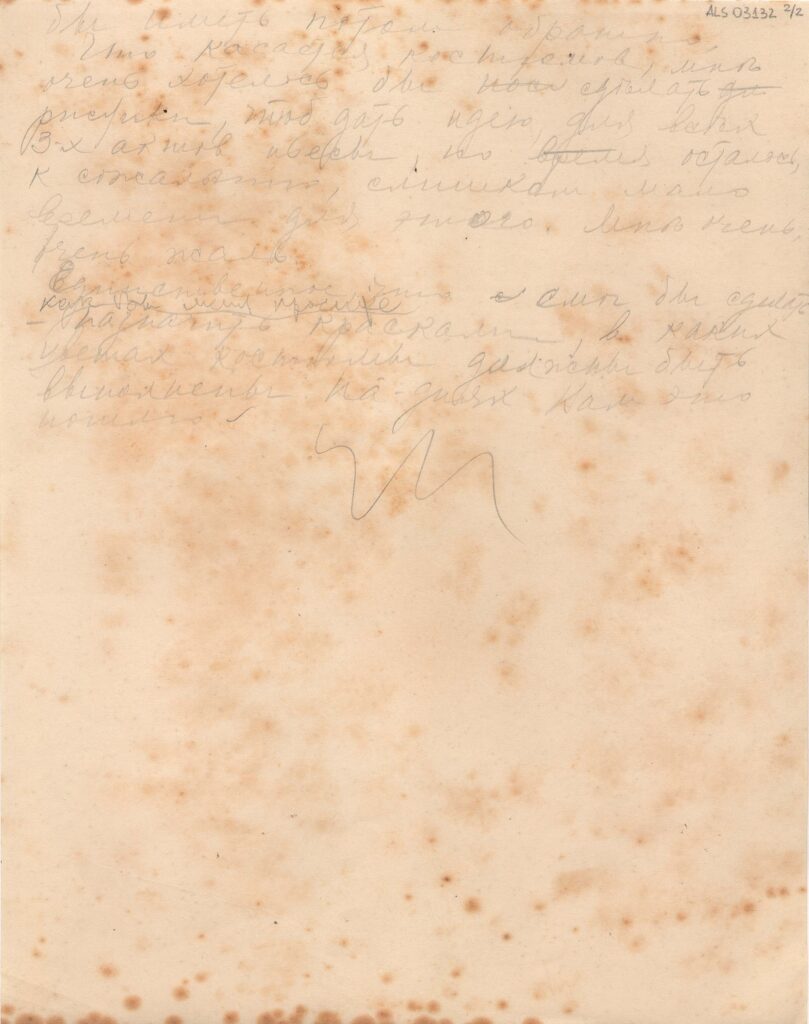 ALS 03132 2/2
бы иметь потом обратно.
Что касается костюмов, мне
очень хотелось бы сделать
рисунки, чтоб дать идею, для всех
3-х актов пьесы, но время осталось,
к сожалению, слишком мало
времени для этого. Мне очень,
очень жаль.
Единственное что я смог бы сделать
как вы меня просите
- раскрасить красками, в каких
цветах костюмы должны быть
выполнены. На-днях Вам это
пошлю.